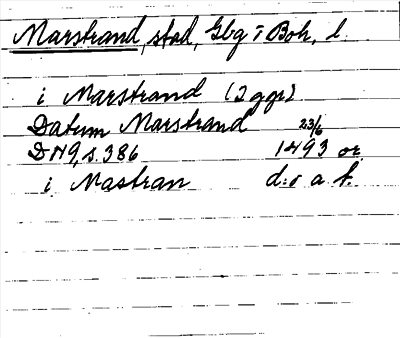 Marstrand, stad, Gbg o Boh, l.
i Marstrand (2 ggr)
Datum Marstrand 23/6
DN9, s. 386 1493 or.
i Mastran d:o a. st.